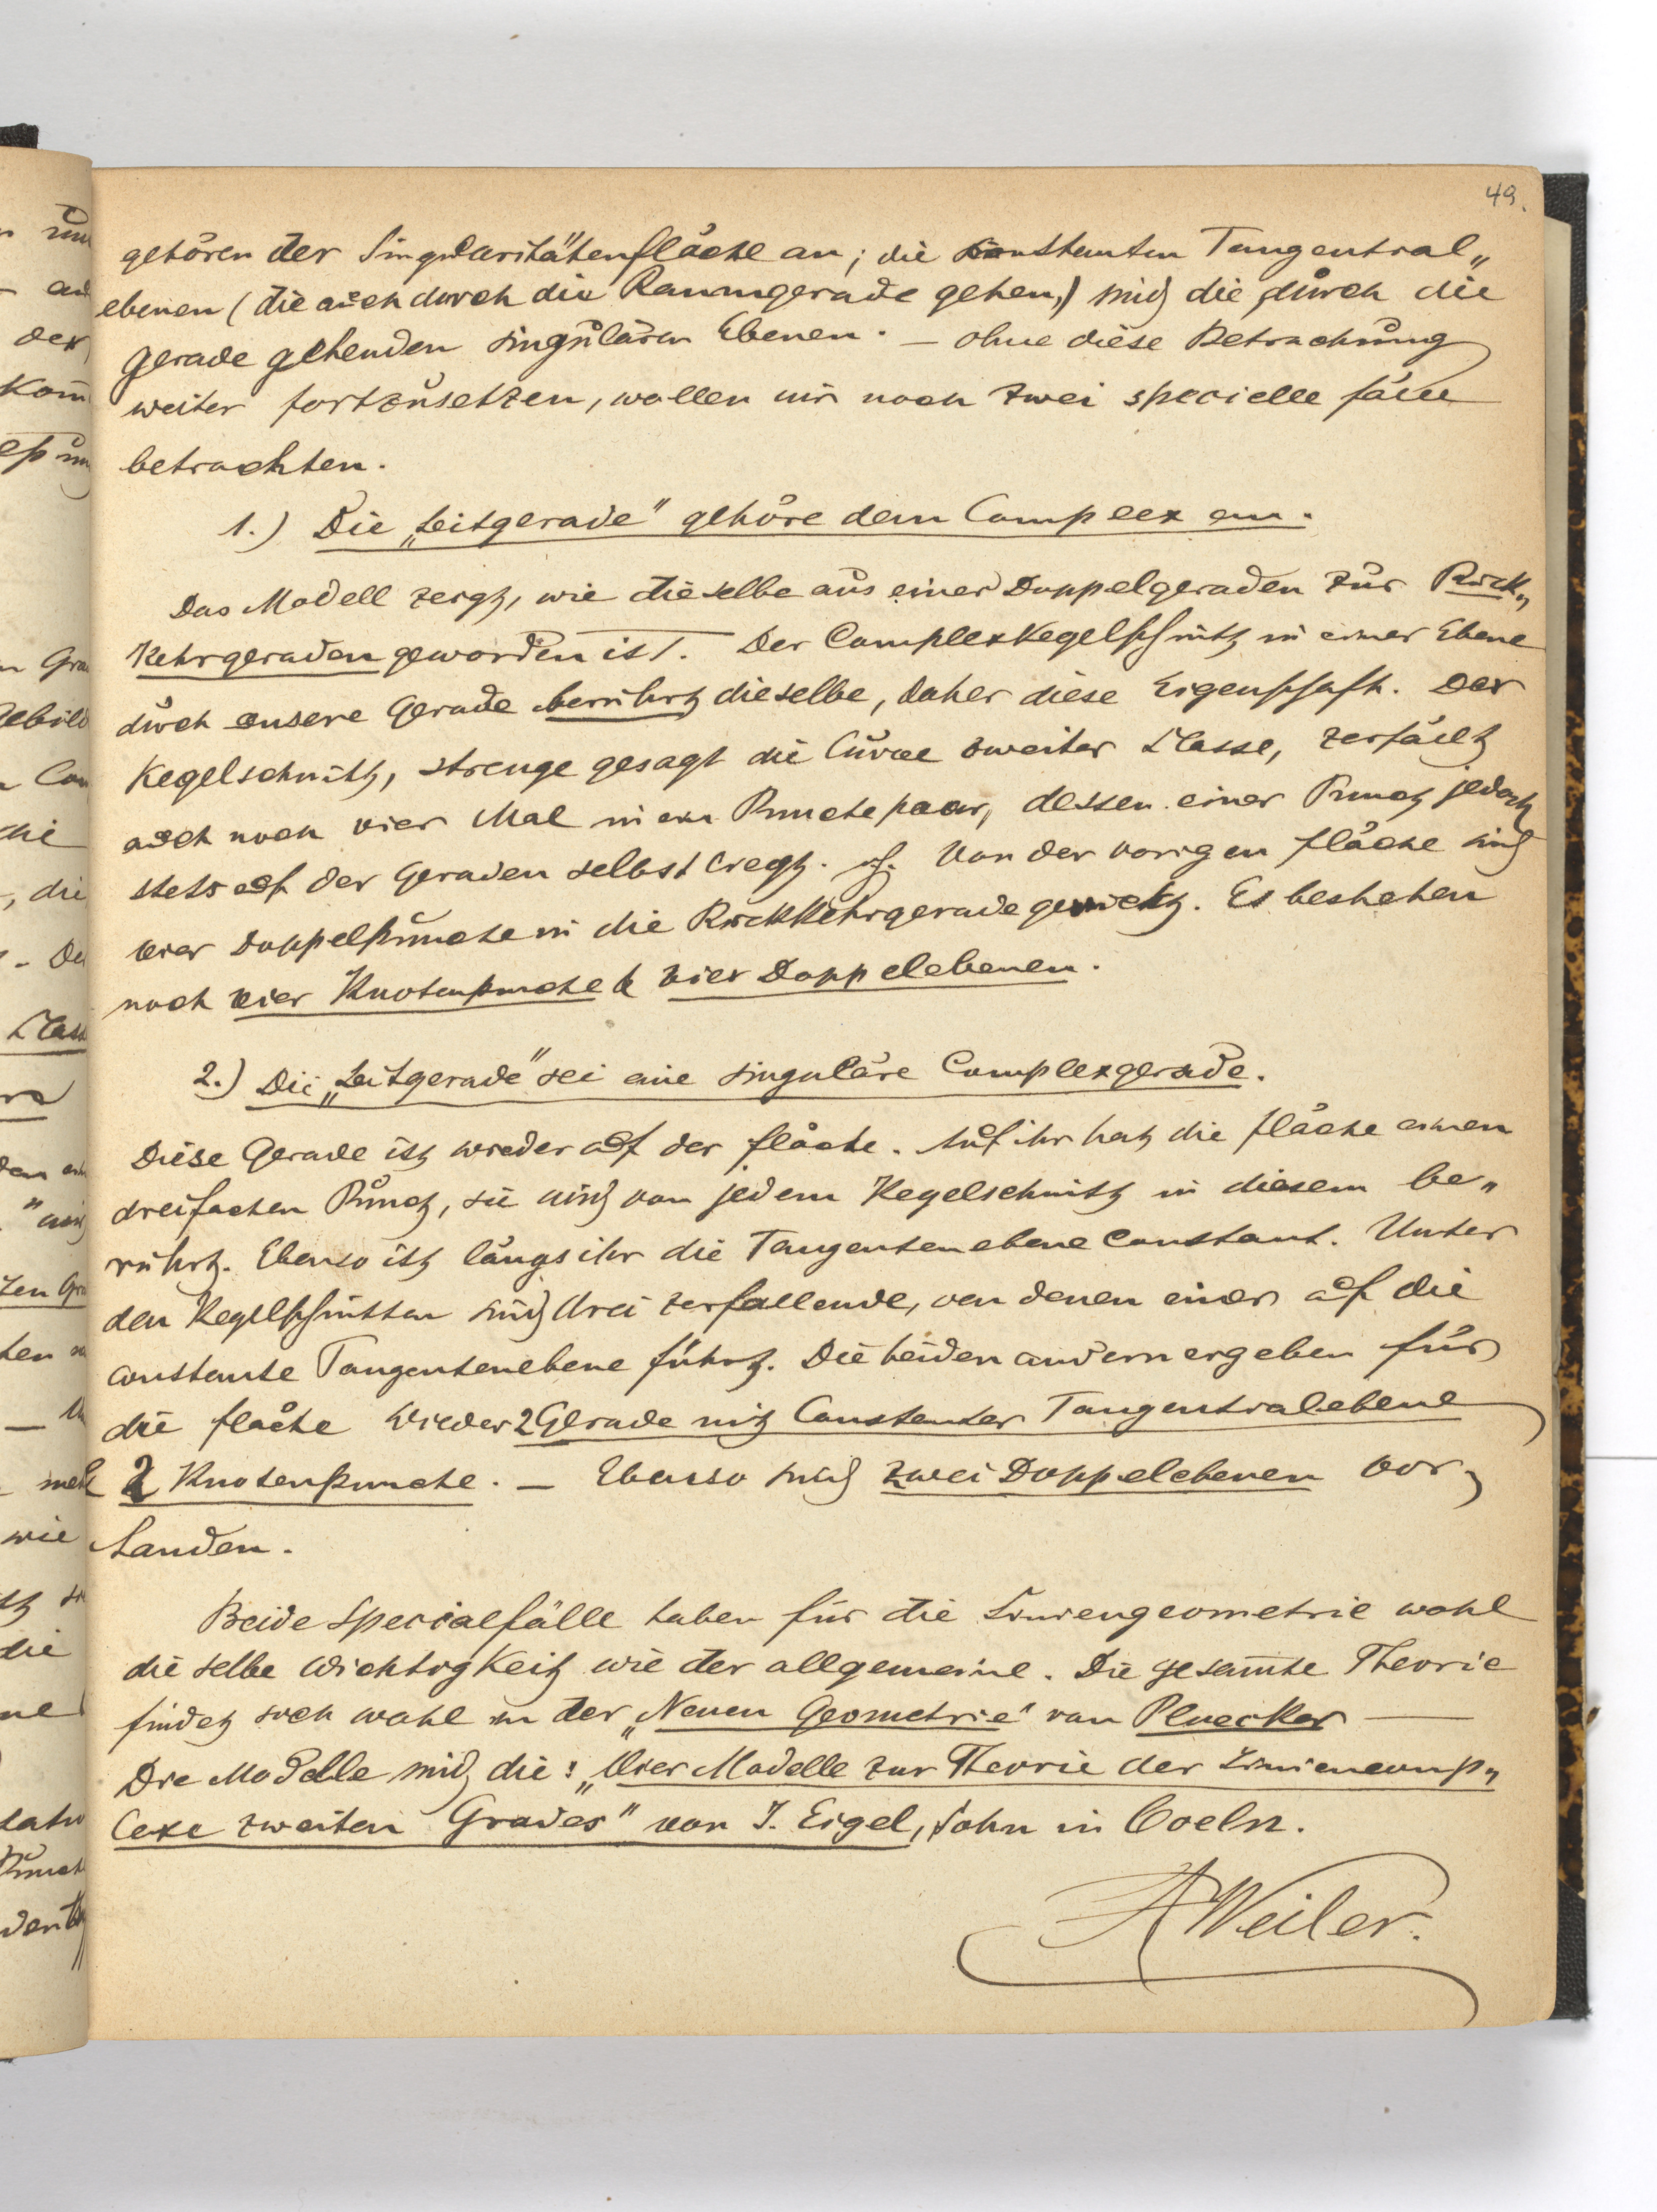 49.
gehören der Singularitätenfläche an; die konstanten Tangential„
ebenen (die auch durch die Raumgerade gehen,) sind die durch die
Gerade gehenden singulären Ebenen. — Ohne diese Betrachtung
weiter fortzusetzen, wollen wir noch zwei specielle Fälle
betrachten.
1.) Die „Leitgerade" gehöre dem Complex an.
Das Modell zeigt, wie dieselbe aus einer Doppelgeraden zur Rück„
kehrgeraden geworden ist. Der Complexkegelschnitt in einer Ebene
durch unsere Gerade berührt dieselbe, daher diese Eigenschaft. Der
Kegelschnitt, strenge gesagt die Curve zweiter Classe, zerfällt
auch noch vier Mal in ein Punctepaar, dessen einer Punct jedoch
stets auf der Geraden selbst liegt. Von der vorigen Fläche sind
vier Doppelpuncte in die Rückkehrgerade gerückt. Es bestehen
noch vier Knotenpuncte & vier Doppelebenen.
2.) Die „Leitgerade" sei eine singuläre Complexgerade.
Diese Gerade ist wieder auf der Fläche. Auf ihr hat die Fläche einen
dreifachen Punct, sie wird von jedem Kegelschnitt in diesem be„
rührt. Ebenso ist längs ihr die Tangentenebene constant. Unter
den Kegelschnitten sind drei zerfallende, von denen einer auf die
constante Tangentenebene führt. Die beiden andern ergeben für
die Fläche wieder 2 Gerade mit Constanter Tangentialebene
2 Knotenpuncte. — Ebenso sind zwei Doppelebenen vor„
handen.
Beide Specialfälle haben für die Liniengeometrie wohl
dieselbe Wichtigkeit wie der allgemeine. Die gesam̅te Theorie
findet sich wohl in der „Neuen Geometrie" von Pluecker —
Die Modelle sind die: „Vier Modelle zur Theorie der Liniencomp„
lexe zweiten Grades" von J. Eigel, Sohn in Coeln.
A Weiler.